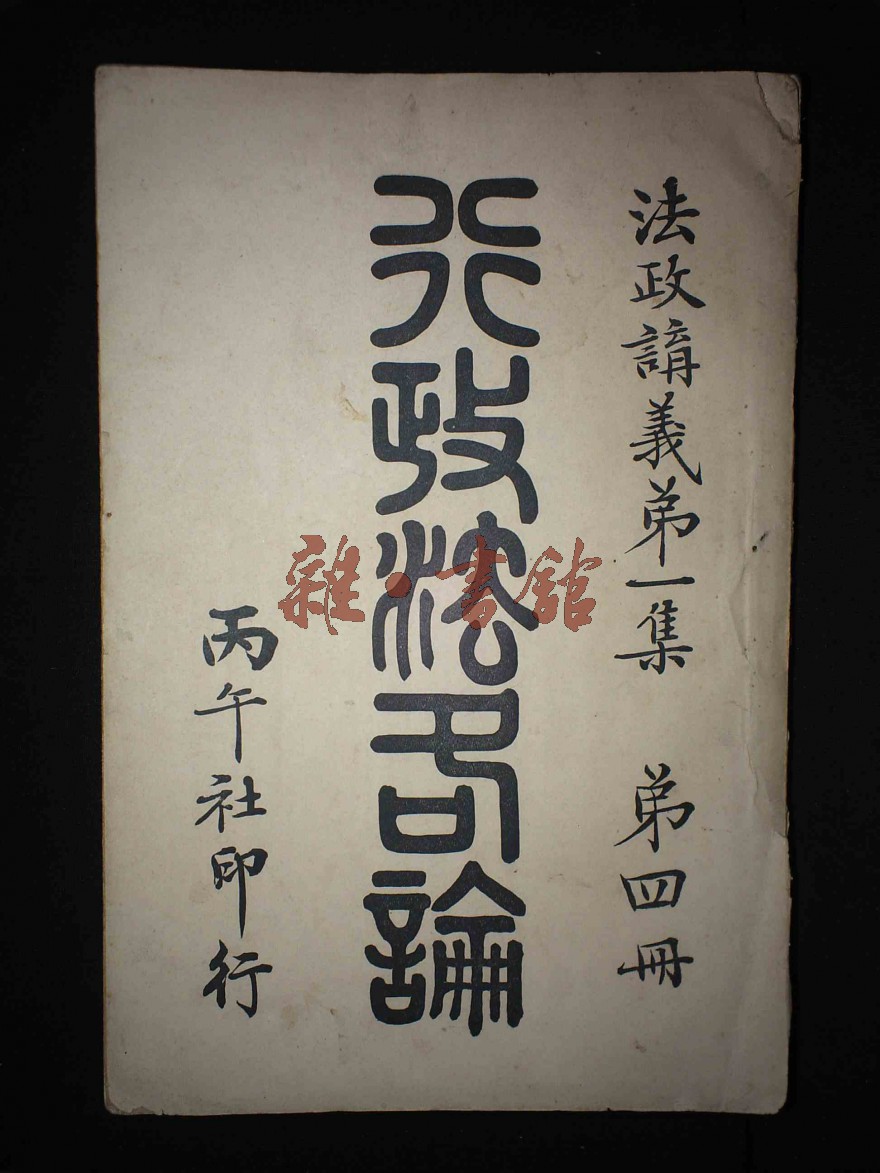 法政講義弟一集　弟四冊
行政法各論
丙午社印行
雜·書館